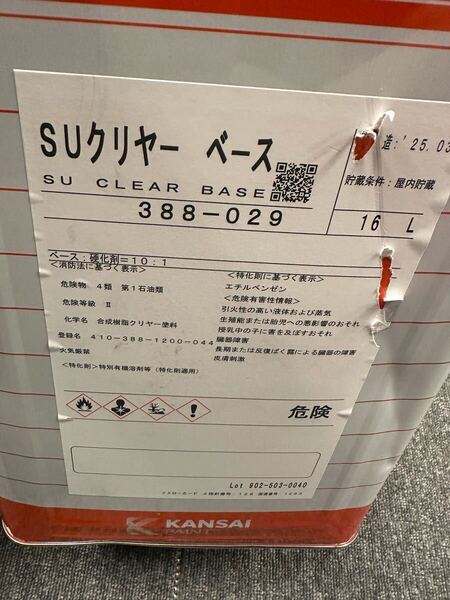 SUクリヤー ベース
SU CLEAR BASE
388-029
造:'25.03
貯蔵条件:屋内貯蔵
16 L
ベース:硬化剤=10:1
<消防法に基づく表示>
危険物 4類 第1石油類
危険等級 Ⅱ
化学名 合成樹脂クリヤー塗料
登録名 410-388-1200-044
火気厳禁
<特化則に基づく表示>
エチルベンゼン
<危険有害性情報>
引火性の高い液体および蒸気
生殖能または胎児への悪影響のおそれ
授乳中の子に害を及ぼすおそれ
臓器障害
長期または反復ばく露による臓器の障害
皮膚刺激
<特化則>特別有機溶剤等(特化則適用)
危険
Lot 902-503-0040
イエローカード 指針番号:128 国連番号:1263
KANSAI
PAINT